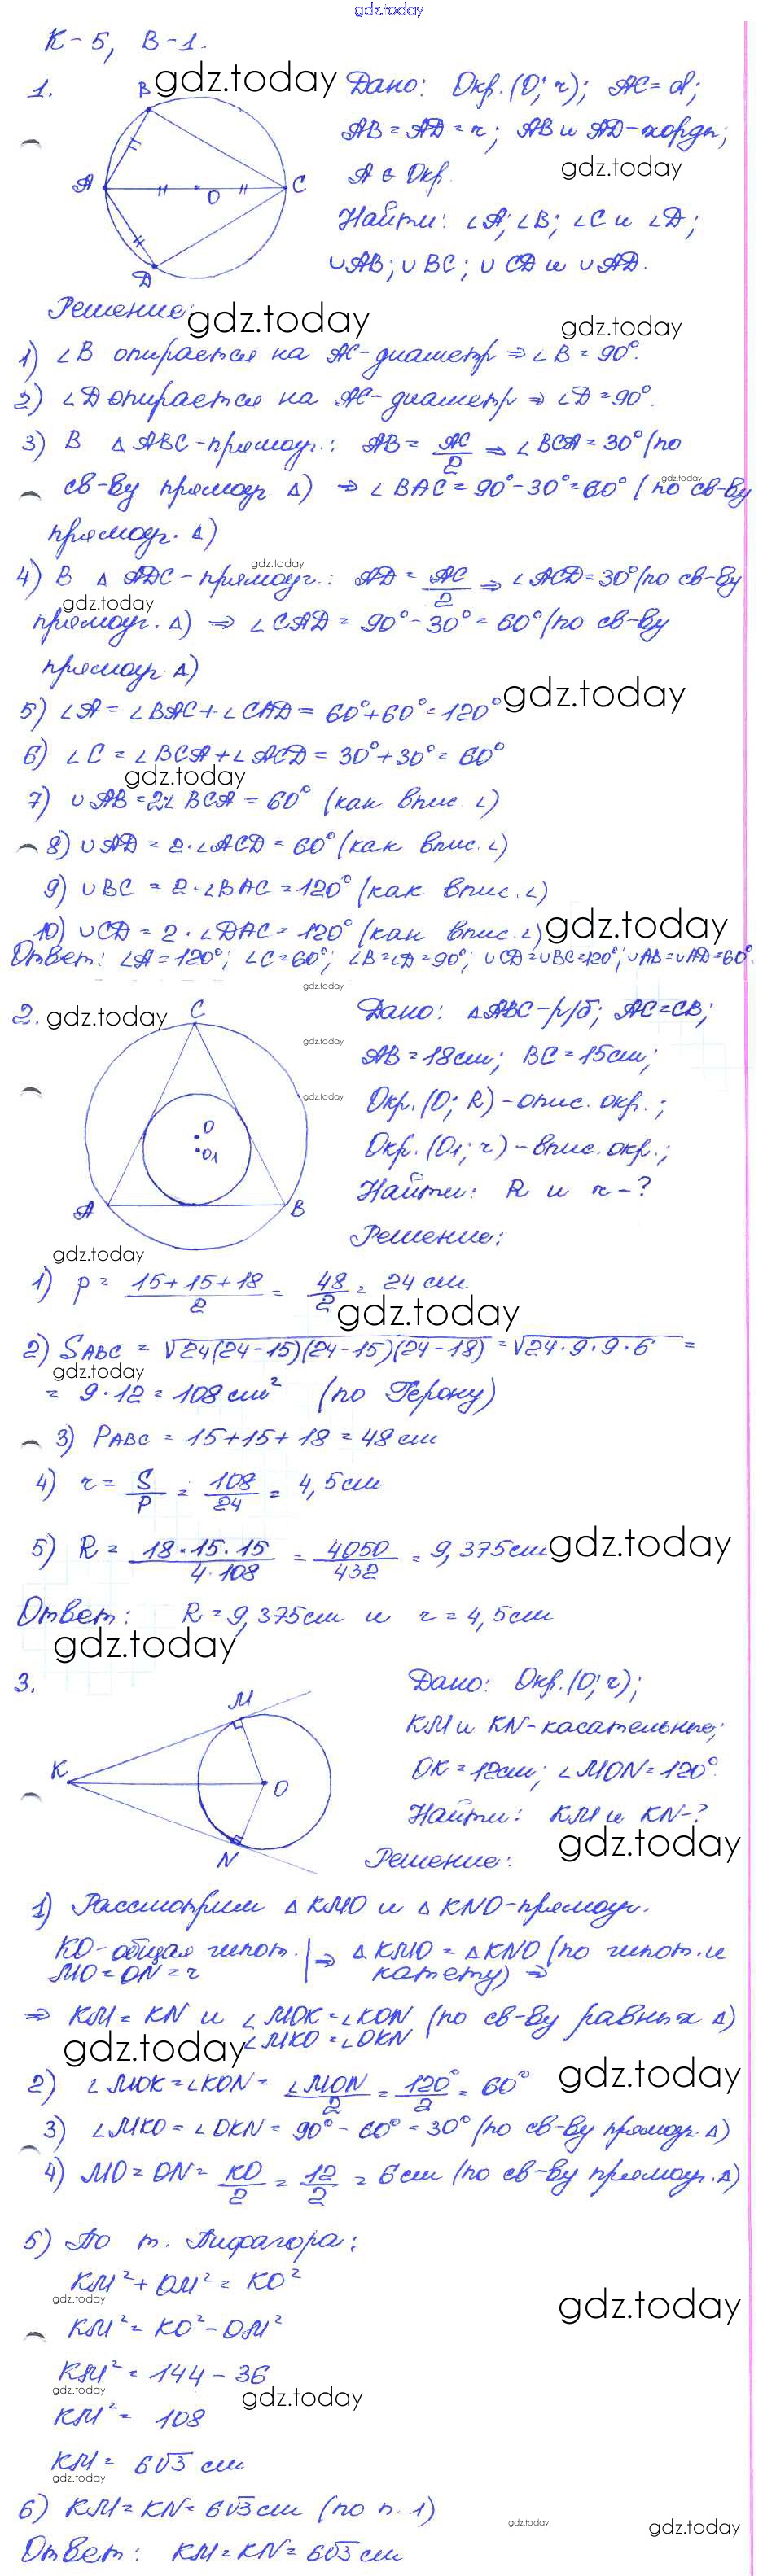 gdz.today
К-5, В-1.
1. B gdz.today Дано: Окр.(O; r); AC=d;
AB=AD=r; AB и AD-хорды;
A C A ∈ Окр. gdz.today
O Найти: ∠A; ∠B; ∠C и ∠D;
D ∪AB; ∪BC; ∪CD и ∪AD.
Решение: gdz.today gdz.today
1) ∠B опирается на AC-диаметр ⇒ ∠B = 90°.
2) ∠D опирается на AC-диаметр ⇒ ∠D = 90°.
3) В △ABC-прямоуг.: AB = AC/2 ⇒ ∠BCA = 30° (по
св-ву прямоуг. △) ⇒ ∠BAC = 90°-30°=60° (по св-ву gdz.today
прямоуг. △)
gdz.today
4) В △ADC-прямоуг.: AD = AC/2 ⇒ ∠ACD=30° (по св-ву
gdz.today
прямоуг. △) ⇒ ∠CAD = 90°-30°= 60° (по св-ву
прямоуг. △)
5) ∠A = ∠BAC+∠CAD = 60°+60°=120° gdz.today
6) ∠C = ∠BCA+∠ACD = 30°+30°= 60°
gdz.today
7) ∪AB=2·∠BCA = 60° (как впис. ∠)
8) ∪AD = 2·∠ACD = 60° (как впис. ∠)
9) ∪BC = 2·∠BAC = 120° (как впис. ∠)
10) ∪CD = 2·∠DAC = 120° (как впис. ∠) gdz.today
Ответ: ∠A=120°; ∠C=60°; ∠B=∠D=90°; ∪CD=∪BC=120°; ∪AB=∪AD=60°.
gdz.today
2. gdz.today C Дано: △ABC-р/б; AC=CB;
gdz.today
AB=18см; BC=15см;
gdz.today
Окр.(O; R)-опис. окр.;
O
O1 Окр.(O1; r)-впис. окр.;
A B Найти: R и r-?
Решение:
gdz.today
1) p = 15+15+18/2 = 48/2 = 24 см
gdz.today
2) SABC = √24(24-15)(24-15)(24-18) = √24·9·9·6 =
gdz.today
= 9·12 = 108 см² (по Герону)
3) PABC = 15+15+18 = 48 см
4) r = S/P = 108/24 = 4,5 см
5) R = 18·15·15/4·108 = 4050/432 = 9,375 см gdz.today
Ответ: R = 9,375 см и r = 4,5 см
gdz.today
3. Дано: Окр.(O; r);
M
KM и KN-касательные;
K O OK=12см; ∠MON=120°.
Найти: KM и KN-?
gdz.today
N Решение:
1) Рассмотрим △KMO и △KNO-прямоуг.
KO-общая гипот. ⇒ △KMO = △KNO (по гипот. и
MO=ON=r катету) ⇒
⇒ KM = KN и ∠MOK=∠KON (по св-ву равных △)
gdz.today ∠MKO=∠OKN
2) ∠MOK=∠KON = ∠MON/2 = 120°/2 = 60° gdz.today
3) ∠MKO = ∠OKN = 90°-60° = 30° (по св-ву прямоуг. △)
4) MO = ON = KO/2 = 12/2 = 6 см (по св-ву прямоуг. △)
5) По т. Пифагора:
KM²+OM² = KO²
gdz.today gdz.today
KM² = KO²-OM²
KM² = 144-36
gdz.today gdz.today
KM² = 108
KM = 6√3 см
gdz.today
6) KM = KN = 6√3 см (по п.1)
gdz.today gdz.today
Ответ: KM = KN = 6√3 см